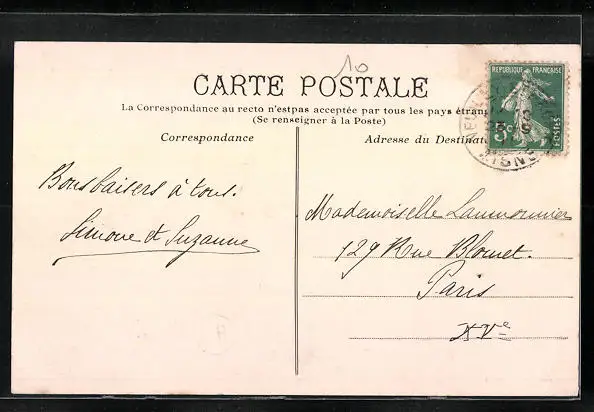 10
CARTE POSTALE
La Correspondance au recto n'est pas acceptée par tous les pays étrang
(Se renseigner à la Poste)
Correspondance
Adresse du Destinat
REPUBLIQUE FRANÇAISE
5c
POSTES
AISNE
Bons baisers à tous.
Simone et Suzanne
Mademoiselle Laumonnier
129 Rue Blomet.
Paris
XVe